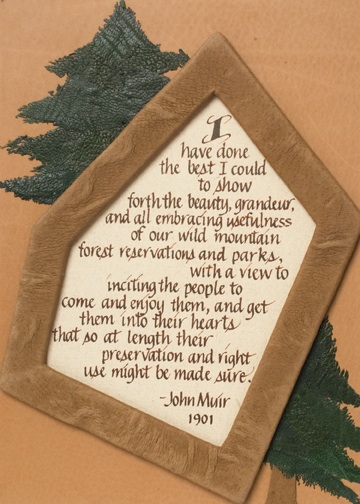 I
have done
the best I could
to show
forth the beauty, grandeur,
and all embracing usefulness
of our wild mountain
forest reservations and parks,
with a view to
inciting the people to
come and enjoy them, and get
them into their hearts
that so at length their
preservation and right
use might be made sure.
-John Muir
1901